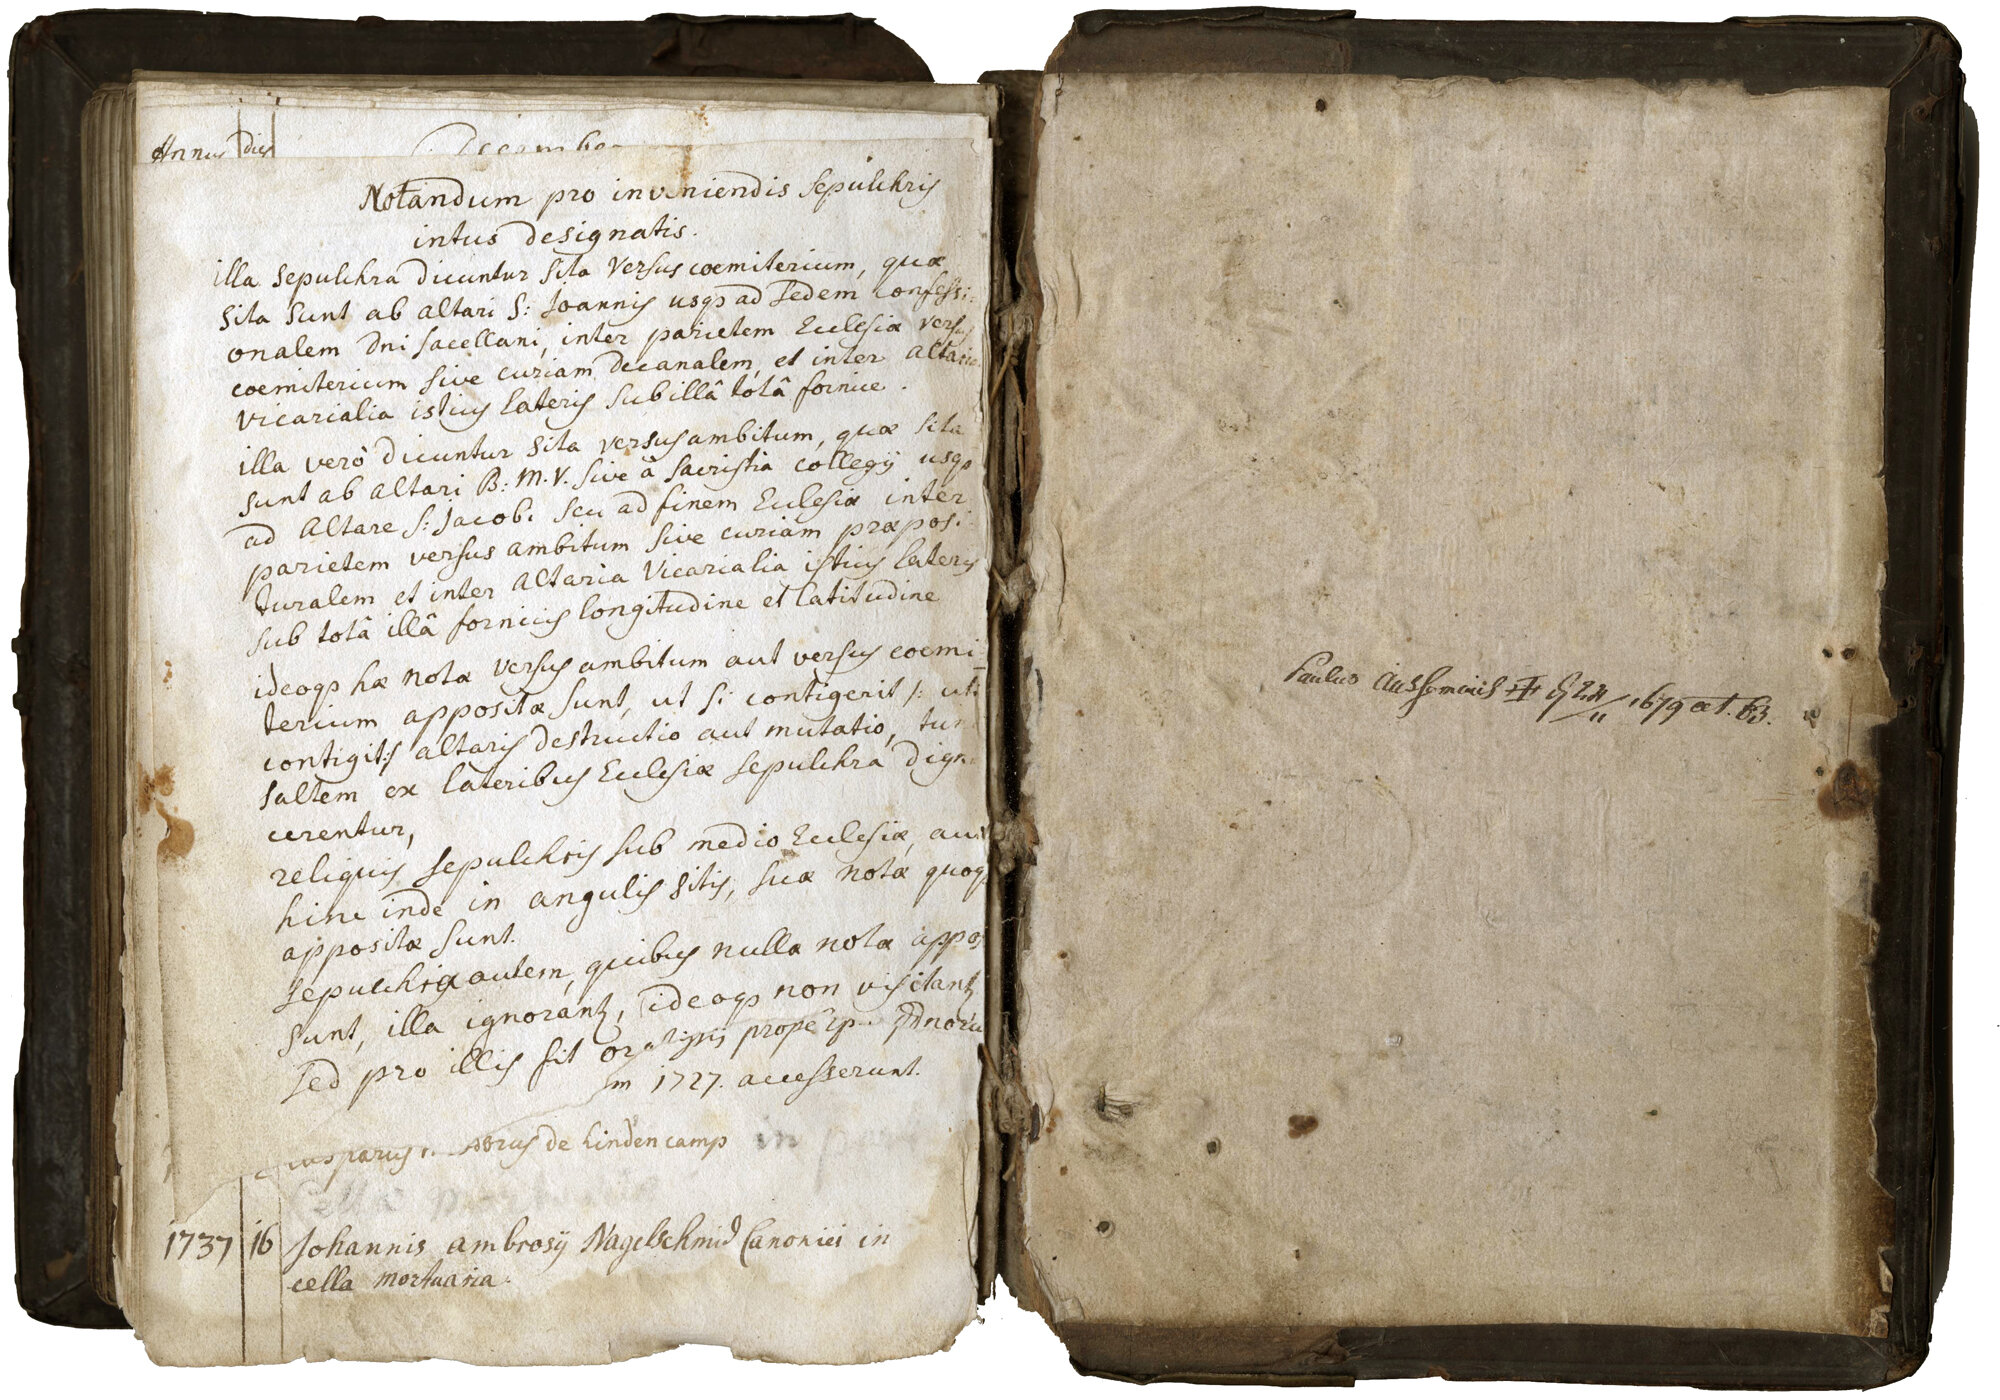 Annus dies December
Notandum pro inveniendis sepulchris
intus designatis.
illa sepulchra dicuntur sita versus coemiterium, quæ
sita sunt ab altari S: Joannis usq ad sedem confessi:
onalem Dni sacellani, inter parietem Ecclesiæ versus
coemiterium sive curiam decanalem, et inter altaria
vicarialia istius lateris sub illâ totâ fornice.
illa verò dicuntur sita versus ambitum, quæ sita
sunt ab altari B: M. V. sive â sacristia collegij usq
ad altare S: Jacobi seu ad finem Ecclesiæ inter
parietem versus ambitum sive curiam præposi:
turalem et inter altaria vicarialia istius lateris
sub totâ illâ fornicis longitudine et latitudine
ideoq hæ notæ versus ambitum aut versus coemi:
terium appositæ sunt, ut si contigerit /: uti
contigit :/ altaris destructio aut mutatio, tum
saltem ex lateribus Ecclesiæ sepulchra dign
cerentur,
reliquis sepulchris sub medio Ecclesiæ, aut
hinc inde in angulis sitis, suæ notæ quoq
appositæ sunt.
sepulchra autem, quibus nulla nota appos
sunt, illa ignorant, ideoq non visitant
sed pro illis fit prope
1727. accesserunt.
de hindencamp in
Cella
1737 16 Johannis ambrosij Nagelschmid Canonici in
cella mortuaria.
Paulus Aussemius 1679 æt. 63.